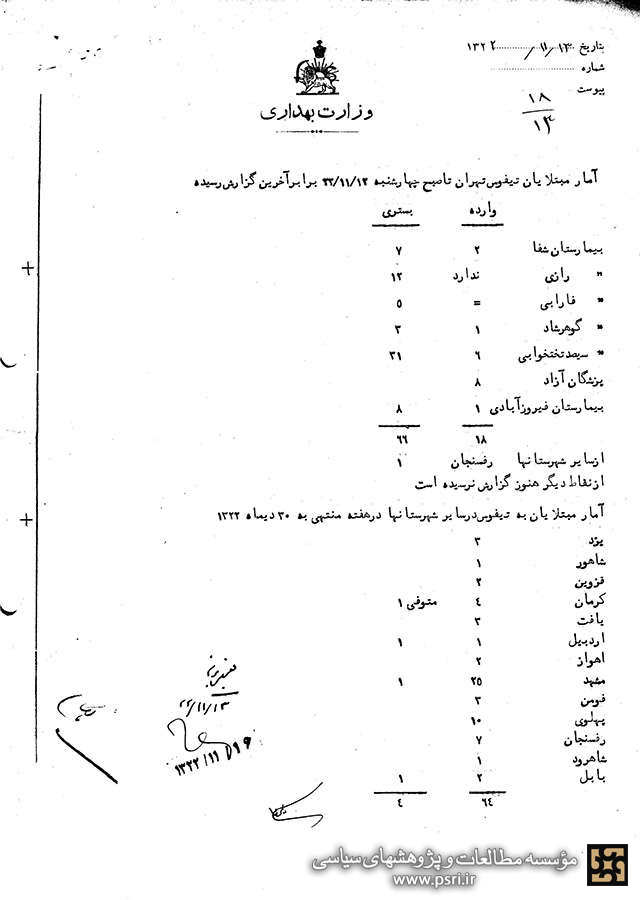 بتاریخ ۱۳/۱۱/۱۳۲۲
شماره
پیوست
۱۸
۱۳
وزارت بهداری
آمار مبتلایان تیفوس تهران تا صبح چهارشنبه ۲۲/۱۱/۱۲ برابر آخرین گزارش رسیده
وارده بستری
بیمارستان شفا ۲ ۷
" رازی ندارد ۱۲
" فارابی = ۵
" گوهرشاد ۱ ۳
" سیصد تختخوابی ۶ ۳۱
پزشگان آزاد ۸
بیمارستان فیروزآبادی ۱ ۸
۱۸ ۶۶
از سایر شهرستانها رفسنجان ۱
از نقاط دیگر هنوز گزارش نرسیده است
آمار مبتلایان به تیفوس در سایر شهرستانها در هفته منتهی به ۳۰ دیماه ۱۳۲۲
یزد ۳
شاهور ۱
قزوین ۲
کرمان ٤ متوفی ۱
بافت ۳
اردبیل ۱ ۱
اهواز ۲
مشهد ۲۵ ۱
فومن ۳
پهلوی ۱۰
رفسنجان ۷
شاهرود ۱
بابل ۲ ۱
٦٤ ٤
۲۲/۱۱/۱۳
۱۳۲۲/۱۱/۱۶
مؤسسه مطالعات و پژوهشهای سیاسی
www.psri.ir